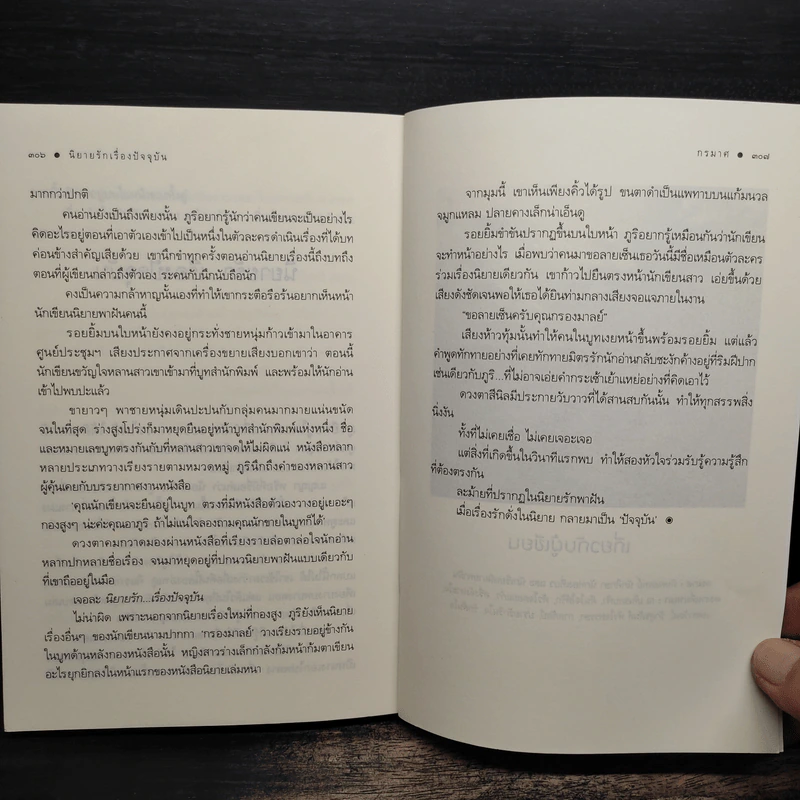 ๓๐๖ ● นิยายรักเรื่องปัจจุบัน
มากกว่าปกติ
คนอ่านยังเป็นถึงเพียงนั้น ภูริอยากรู้นักว่าคนเขียนจะเป็นอย่างไร
คิดอะไรอยู่ตอนที่เอาตัวเองเข้าไปเป็นหนึ่งในตัวละครดำเนินเรื่องที่ได้บท
ค่อนข้างสำคัญเสียด้วย เขานึกขำทุกครั้งตอนอ่านนิยายเรื่องนี้ถึงบทถึง
ตอนที่ผู้เขียนกล่าวถึงตัวเอง ระคนกับนึกนับถือนัก
คงเป็นความกล้าหาญนั้นเองที่ทำให้เขากระตือรือร้นอยากเห็นหน้า
นักเขียนนิยายพาฝันคนนี้
รอยยิ้มบนใบหน้ายังคงอยู่กระทั่งชายหนุ่มก้าวเข้ามาในอาคาร
ศูนย์ประชุมฯ เสียงประกาศจากเครื่องขยายเสียงบอกเขาว่า ตอนนี้
นักเขียนขวัญใจหลานสาวเขาเข้ามาที่บูทสำนักพิมพ์ และพร้อมให้นักอ่าน
เข้าไปพบปะแล้ว
ขายาวๆ พาชายหนุ่มเดินปะปนกับกลุ่มคนมากมายแน่นขนัด
จนในที่สุด ร่างสูงโปร่งก็มาหยุดยืนอยู่หน้าบูทสำนักพิมพ์แห่งหนึ่ง ชื่อ
และหมายเลขบูทตรงกันกับที่หลานสาวเขาจดให้ไม่ผิดแน่ หนังสือหลาก
หลายประเภทวางเรียงรายตามหมวดหมู่ ภูริฉีกถึงคำของหลานสาว
ผู้คุ้นเคยกับบรรยากาศงานหนังสือ
'คุณนักเขียนจะยืนอยู่ในบูท ตรงที่มีหนังสือตัวเองวางอยู่เยอะๆ
กองสูงๆ น่ะค่ะคุณอาภูริ ถ้าไม่แน่ใจลองถามคุณนักขายในบูทก็ได้'
ดวงตาคมกวาดมองผ่านหนังสือที่เรียงรายล่อตาล่อใจนักอ่าน
หลากปกหลายชื่อเรื่อง จนมาหยุดอยู่ที่ปกนวนิยายพาฝันแบบเดียวกับ
ที่เขาถืออยู่ในมือ
เจอละ นิยายรัก...เรื่องปัจจุบัน
ไม่น่าผิด เพราะนอกจากนิยายเรื่องใหม่ที่กองสูง ภูริยังเห็นนิยาย
เรื่องอื่นๆ ของนักเขียนนามปากกา 'กรองมาลย์' วางเรียงรายอยู่ข้างกัน
ในบูทด้านหลังกองหนังสือนั้น หญิงสาวร่างเล็กกำลังก้มหน้าก้มตาเขียน
อะไรยุกยิกลงในหน้าแรกของหนังสือนิยายเล่มหนา
กรมาศ ● ๓๐๗
จากมุมนี้ เขาเห็นเพียงคิ้วได้รูป ขนตาดำเป็นแพทาบบนแก้มนวล
จมูกแหลม ปลายคางเล็กน่าเอ็นดู
รอยยิ้มขำขันปรากฏขึ้นบนใบหน้า ภูริอยากรู้เหมือนกันว่านักเขียน
จะทำหน้าอย่างไร เมื่อพบว่าคนมาขอลายเซ็นเธอวันนี้มีชื่อเหมือนตัวละคร
ร่วมเรื่องนิยายเดียวกัน เขาก้าวไปยืนตรงหน้านักเขียนสาว เอ่ยขึ้นด้วย
เสียงดังชัดเจนพอให้เธอได้ยินท่ามกลางเสียงจอแจภายในงาน
"ขอลายเซ็นครับคุณกรองมาลย์"
เสียงห้าวทุ้มนั้นทำให้คนในบูทเงยหน้าขึ้นพร้อมรอยยิ้ม แต่แล้ว
คำพูดทักทายอย่างที่เคยทักทายมิตรรักนักอ่านกลับชะงักค้างอยู่ที่ริมฝีปาก
เช่นเดียวกับภูริ...ที่ไม่อาจเอ่ยคำกระเซ้าเย้าแหย่อย่างที่คิดเอาไว้
ดวงตาสีนิลมีประกายวับวาวที่ได้สานสบกันนั้น ทำให้ทุกสรรพสิ่ง
นิ่งงัน
ทั้งที่ไม่เคยเชื่อ ไม่เคยเจอะเจอ
แต่สิ่งที่เกิดขึ้นในวินาทีแรกพบ ทำให้สองหัวใจร่วมรับรู้ความรู้สึก
ที่ต้องตรงกัน
ละม้ายที่ปรากฏในนิยายรักพาฝัน
เมื่อเรื่องรักดั่งในนิยาย กลายมาเป็น 'ปัจจุบัน' ◉